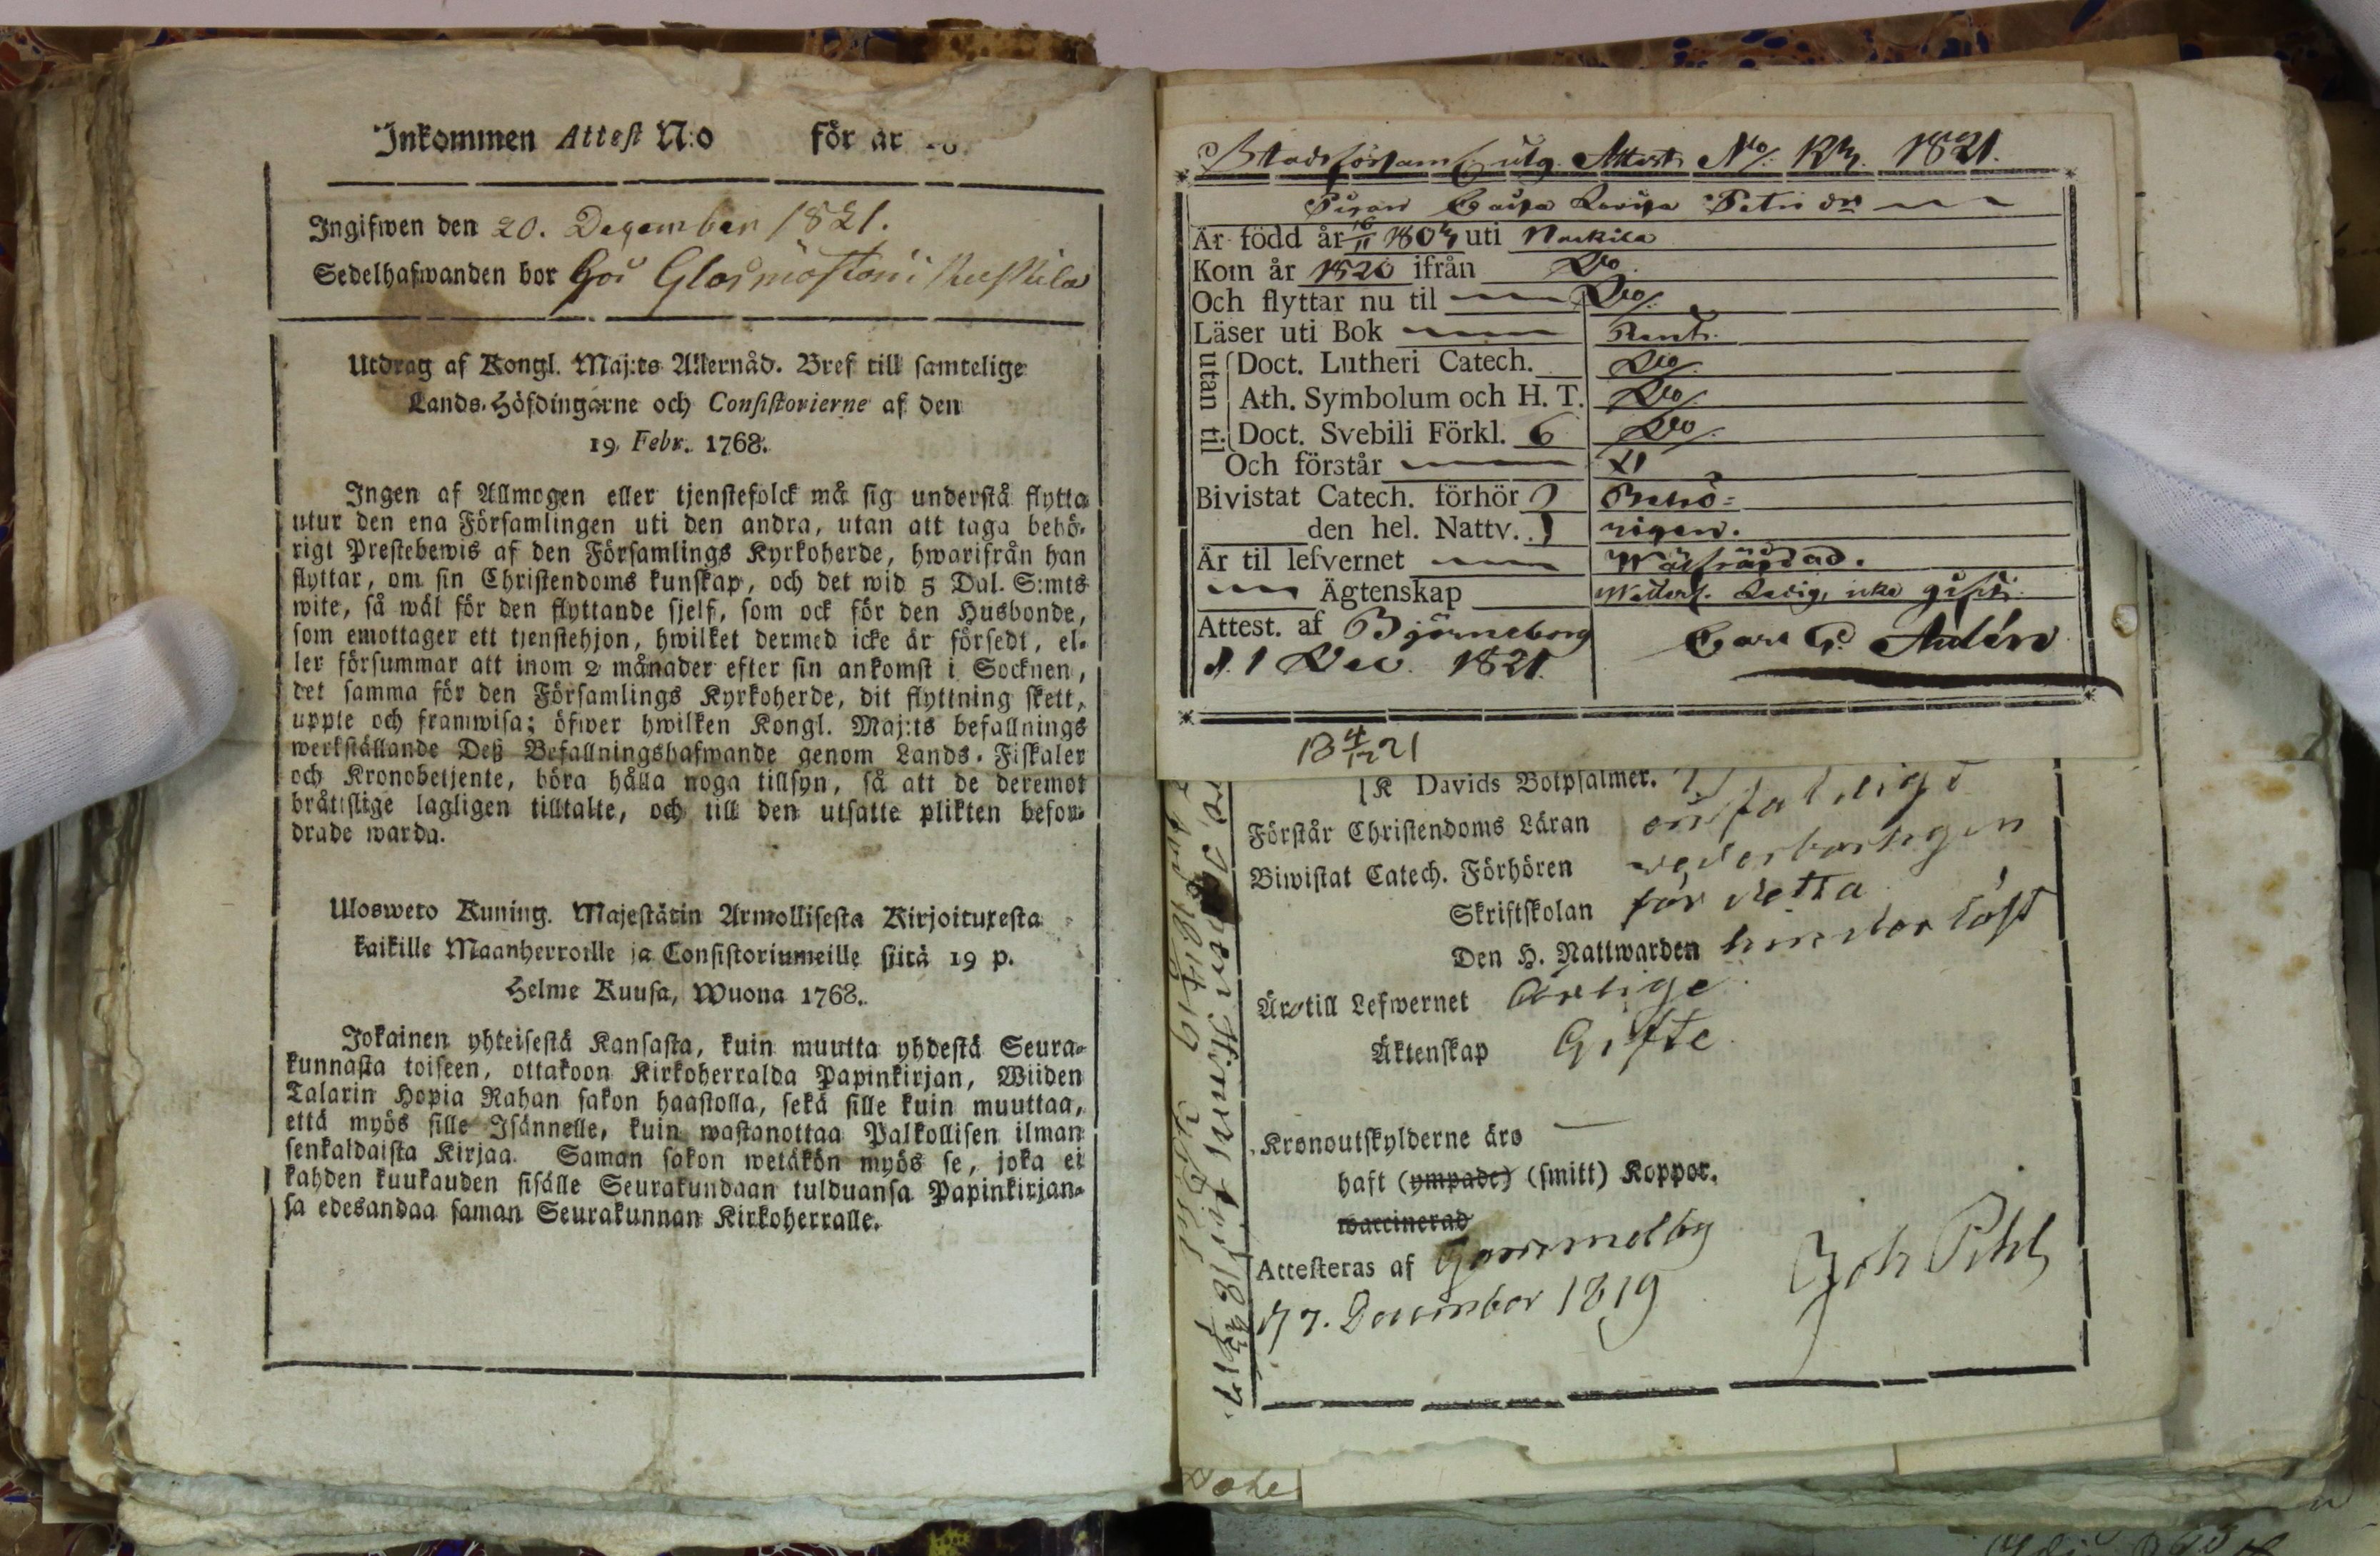 Inkommen Attest N:o för år
Ingifwen den 20. December 1821.
Sedelhafwanden bor hos Glasmästar i
Utdrag af Kongl. Maj:ts Allernåd. Bref till samtelige
Lands-Höfdingarne och Consistorierne af den
19 Febr. 1768.
Ingen af Allmogen eller tjenstefolck må sig understå flytta
utur den ena Församlingen uti den andra, utan att taga behö-
rigt Prestebewis af den Församlings Kyrkoherde, hwarifrån han
flyttar, om sin Christendoms kunskap, och det wid 5 Dal. S:mts
wite, så wäl för den flyttande sjelf, som ock för den Husbonde,
som emottager ett tjenstehjon, hwilket dermed icke är försedt, el-
ler försummar att inom 2 månader efter sin ankomst i Socknen,
det samma för den Församlings Kyrkoherde, dit flyttning skett,
uppte och framwisa; öfwer hwilken Kongl. Maj:ts befallnings
werkställande Deß Befallningshafwande genom Lands-Fiskaler
och Kronobetjente, böra hålla noga tillsyn, så att de deremot
bråttslige lagligen tilltalte, och till den utsatte plikten befor-
drade warda.
Ulosweto Kuning. Majestätin Armollisesta Kirjoituxesta
kaikille Maanherroille ja Consistoriumeille siitä 19 p.
Helme Kuusa, Wuona 1768.
Jokainen yhteisestä Kansasta, kuin muutta yhdestä Seura-
kunnasta toiseen, ottakoon Kirkoherralda Papinkirjan, Wiiden
Talarin Hopia Rahan sakon haastolla, sekä sille kuin muuttaa,
että myös sille Isännelle, kuin wastanottaa Palkollisen ilman
senkaldaista Kirjaa. Saman sakon wetäkön myös se, joka ei
kahden kuukauden sisälle Seurakundaan tulduansa Papinkirjan-
sa edesandaa saman Seurakunnan Kirkoherralle.
Stadsförsaml. utg. Attest No. 1821.
Pigan Caisa Lovisa Petri dr
Är född år 16/11 1804 uti Nackila
Kom år 1820 ifrån Do
Och flyttar nu til Do
Läser uti Bok Rent.
utan til
Doct. Lutheri Catech. Do
Ath. Symbolum och H. T. Do
Doct. Svebili Förkl. 6 Do
Och förstår
Bivistat Catech. förhör Behö=
den hel. Nattv. rigen.
Är til lefvernet Wälfrägdad.
Ägtenskap Ledig, icke gift.
Attest. af Björneborg
d. 1 Dec. 1821. Carl G.
4/12 21
K Davids Botpsalmer.
Förstår Christendoms Läran enfaldigt
Biwistat Catech. Förhören wederbörligen
Skriftskolan för detta
Den H. Nattwarden hinderlöst
Äro till Lefwernet ärlige
Äktenskap Gifte
Kronoutskylderne äro —
haft (ympade) (smitt) Koppor.
waccinerad
Attesteras af Gammelby
d 7. December 1819 Joh Pihl